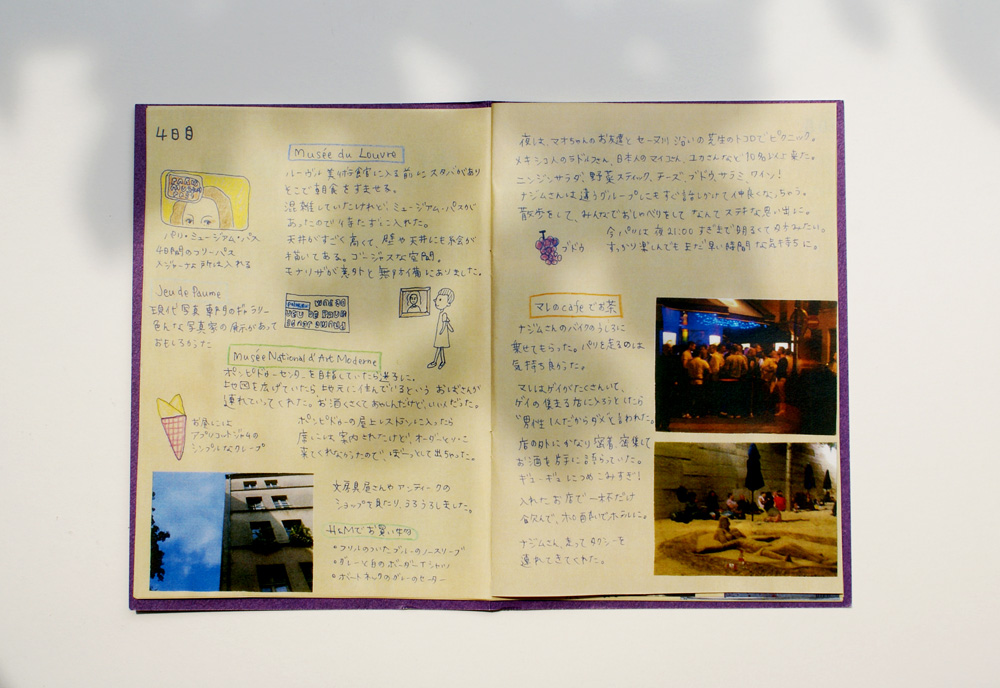 4日目
Musée du Louvre
ルーヴル美術館に入る前にスタバがあり
そこで朝食をすませる。
混雑していたけれど、ミュージアム・パスが
あったので待たずに入れた。
天井がすごく高くて、壁や天井にも絵が
描いてある。ゴージャスな空間。
モナリザが意外と無防備にありました。
パリ・ミュージアム・パス
4日間のフリーパス
メジャーな所は入れる
Jeu de Paume
現代写真専門のギャラリー
色んな写真家の展示があって
おもしろかった
Musée National d'Art Moderne
ポンピドゥーセンターを目指していたら迷子に。
地図を広げていたら地元に住んでいるというおばさんが
連れていってくれた。お酒くさくてあやしんだけど、いい人だった。
お昼には
アプリコットジャムの
シンプルなクレープ
ポンピドゥーの屋上レストランに入ったら
席には案内されたけど、オーダーとりに
来てくれなかったので、ぼーっとして出ちゃった。
文房具屋さんやアンティークの
ショップを見たり、うろうろしました。
H&Mでお買い物
フリルのついたブルーのノースリーブ
グレーと白のボーダーTシャツ
ボートネックのグレーのセーター
夜は、マオちゃんのお友達とセーヌ川沿いの芝生のトコロでピクニック。
メキシコ人のラドルフさん、日本人のマイコさん、ユカさんなど10名以上来た。
ニンジンサラダ、野菜スティック、チーズ、ブドウ、サラミ、ワイン!
ナジムさんは違うグループにもすぐ話しかけて仲良くなっちゃう。
散歩をして、みんなでおしゃべりをしてなんてステキな思い出に。
今パリは夜21:00すぎまで明るくて夕方みたい。
すっかり楽しんでもまだ早い時間な気持ちに。
ブドウ
マレのcafeでお茶
ナジムさんのバイクのうしろに
乗せてもらった。パリを走るのは
気持ち良かった。
マレはゲイがたくさんいて、
ゲイの集まる店に入ろうとしたら
"男性1人だからダメ"と言われた。
店の外にかなり密着密集して
お酒を片手に語らっていた。
ギューギューにつめこみすぎ!
入れたお店で一杯だけ
飲んで、ホテルに。
ナジムさん、走ってタクシーを
連れてきてくれた。